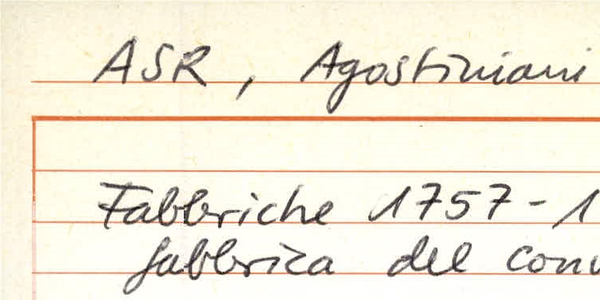 ASR, Agostiniani
Fabbriche 1757-1
fabbrica del conv